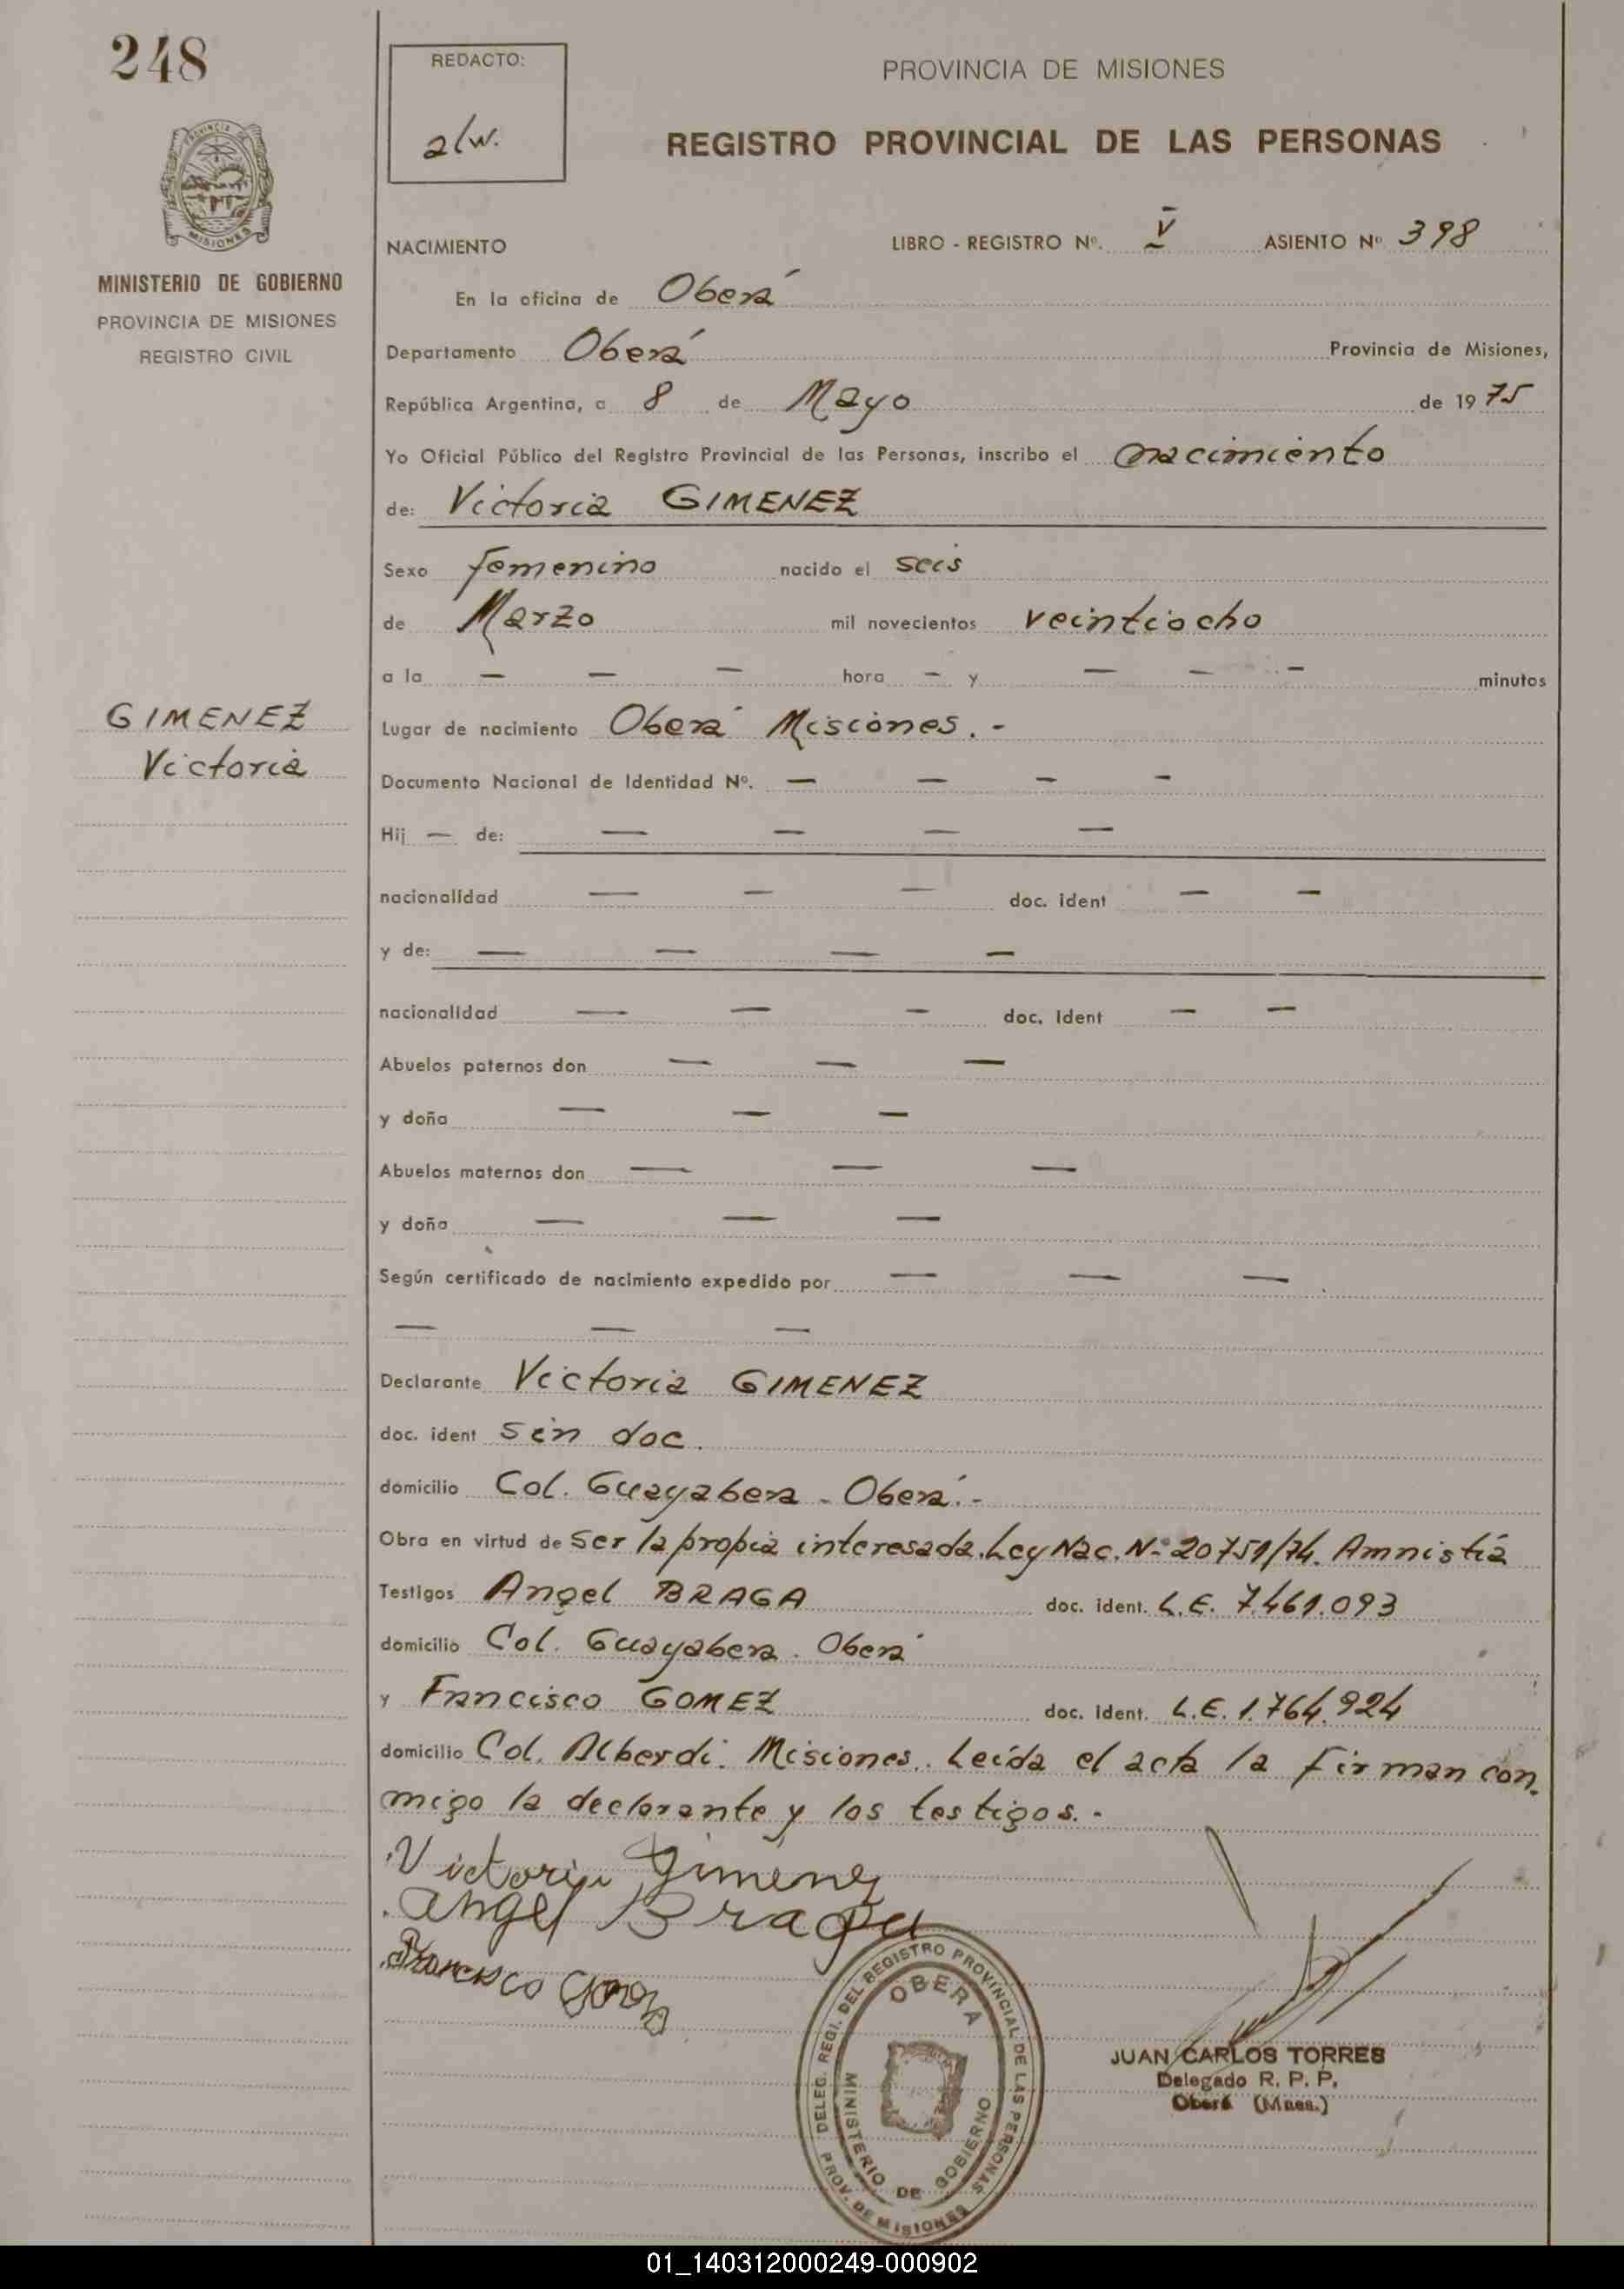 248
REDACTO:
a/w.
PROVINCIA DE MISIONES
REGISTRO PROVINCIAL DE LAS PERSONAS
PROVINCIA DE
MISIONES
MINISTERIO DE GOBIERNO
PROVINCIA DE MISIONES
REGISTRO CIVIL
NACIMIENTO LIBRO - REGISTRO Nº. V ASIENTO Nº 398
En la oficina de Oberá
Departamento Oberá Provincia de Misiones,
República Argentina, a 8 de Mayo de 1975
Yo Oficial Público del Registro Provincial de las Personas, inscribo el nacimiento
de: Victoria GIMENEZ
Sexo femenino nacido el seis
de Marzo mil novecientos veintiocho
a la — — — hora - y — — - minutos
GIMENEZ
Victoria
Lugar de nacimiento Oberá Misiones. -
Documento Nacional de Identidad Nº. — — - -
Hij — de: — — — —
nacionalidad — — — doc. ident — —
y de: — — — —
nacionalidad — — — doc. ident — —
Abuelos paternos don — — —
y doña — — —
Abuelos maternos don — — —
y doña — — —
Según certificado de nacimiento expedido por — — —
— — —
Declarante Victoria GIMENEZ
doc. ident sin doc.
domicilio Col. Guayabera - Oberá. -
Obra en virtud de ser la propia interesada. Ley Nac. Nº 20751/74. Amnistía
Testigos Angel BRAGA doc. ident. L.E. 7.461.093
domicilio Col. Guayabera. Oberá
y Francisco GOMEZ doc. ident. L.E. 1.764.924
domicilio Col. Alberdi. Misiones. Leída el acta la firman con-
migo la declarante y los testigos. -
Victoria Gimenez
Angel Braga
Francisco Gomez
DELEG. REGI. DEL REGISTRO PROVINCIAL DE LAS PERSONAS
OBERA
MINISTERIO DE GOBIERNO
PROV. DE MISIONES
JUAN CARLOS TORRES
Delegado R. P. P.
Oberá (Mnes.)
01_140312000249-000902